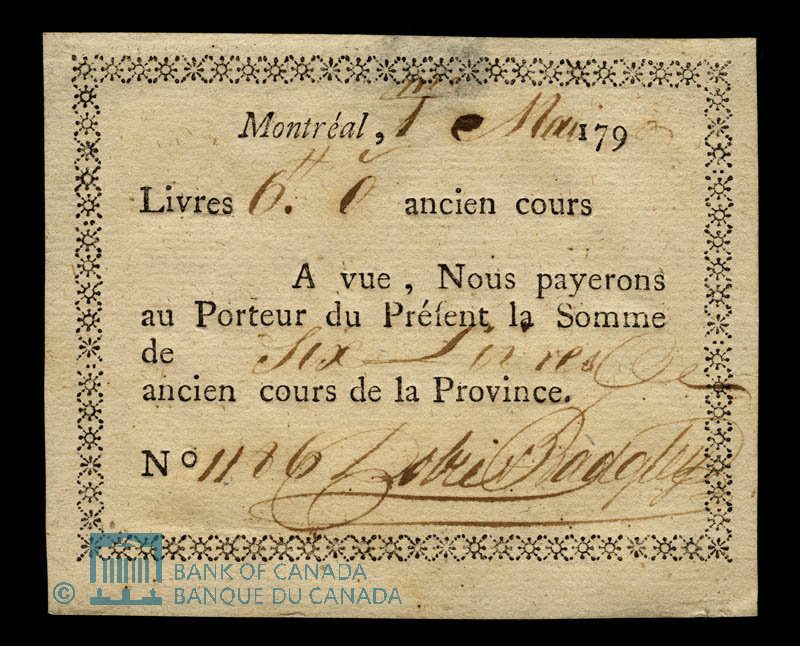 Montréal, 1 Mai 179
Livres 6₶. 0 ancien cours
A vue, Nous payerons
au Porteur du Préſent la Somme
de Six Livres
ancien cours de la Province.
No 1186 Badgley
© BANK OF CANADA
BANQUE DU CANADA